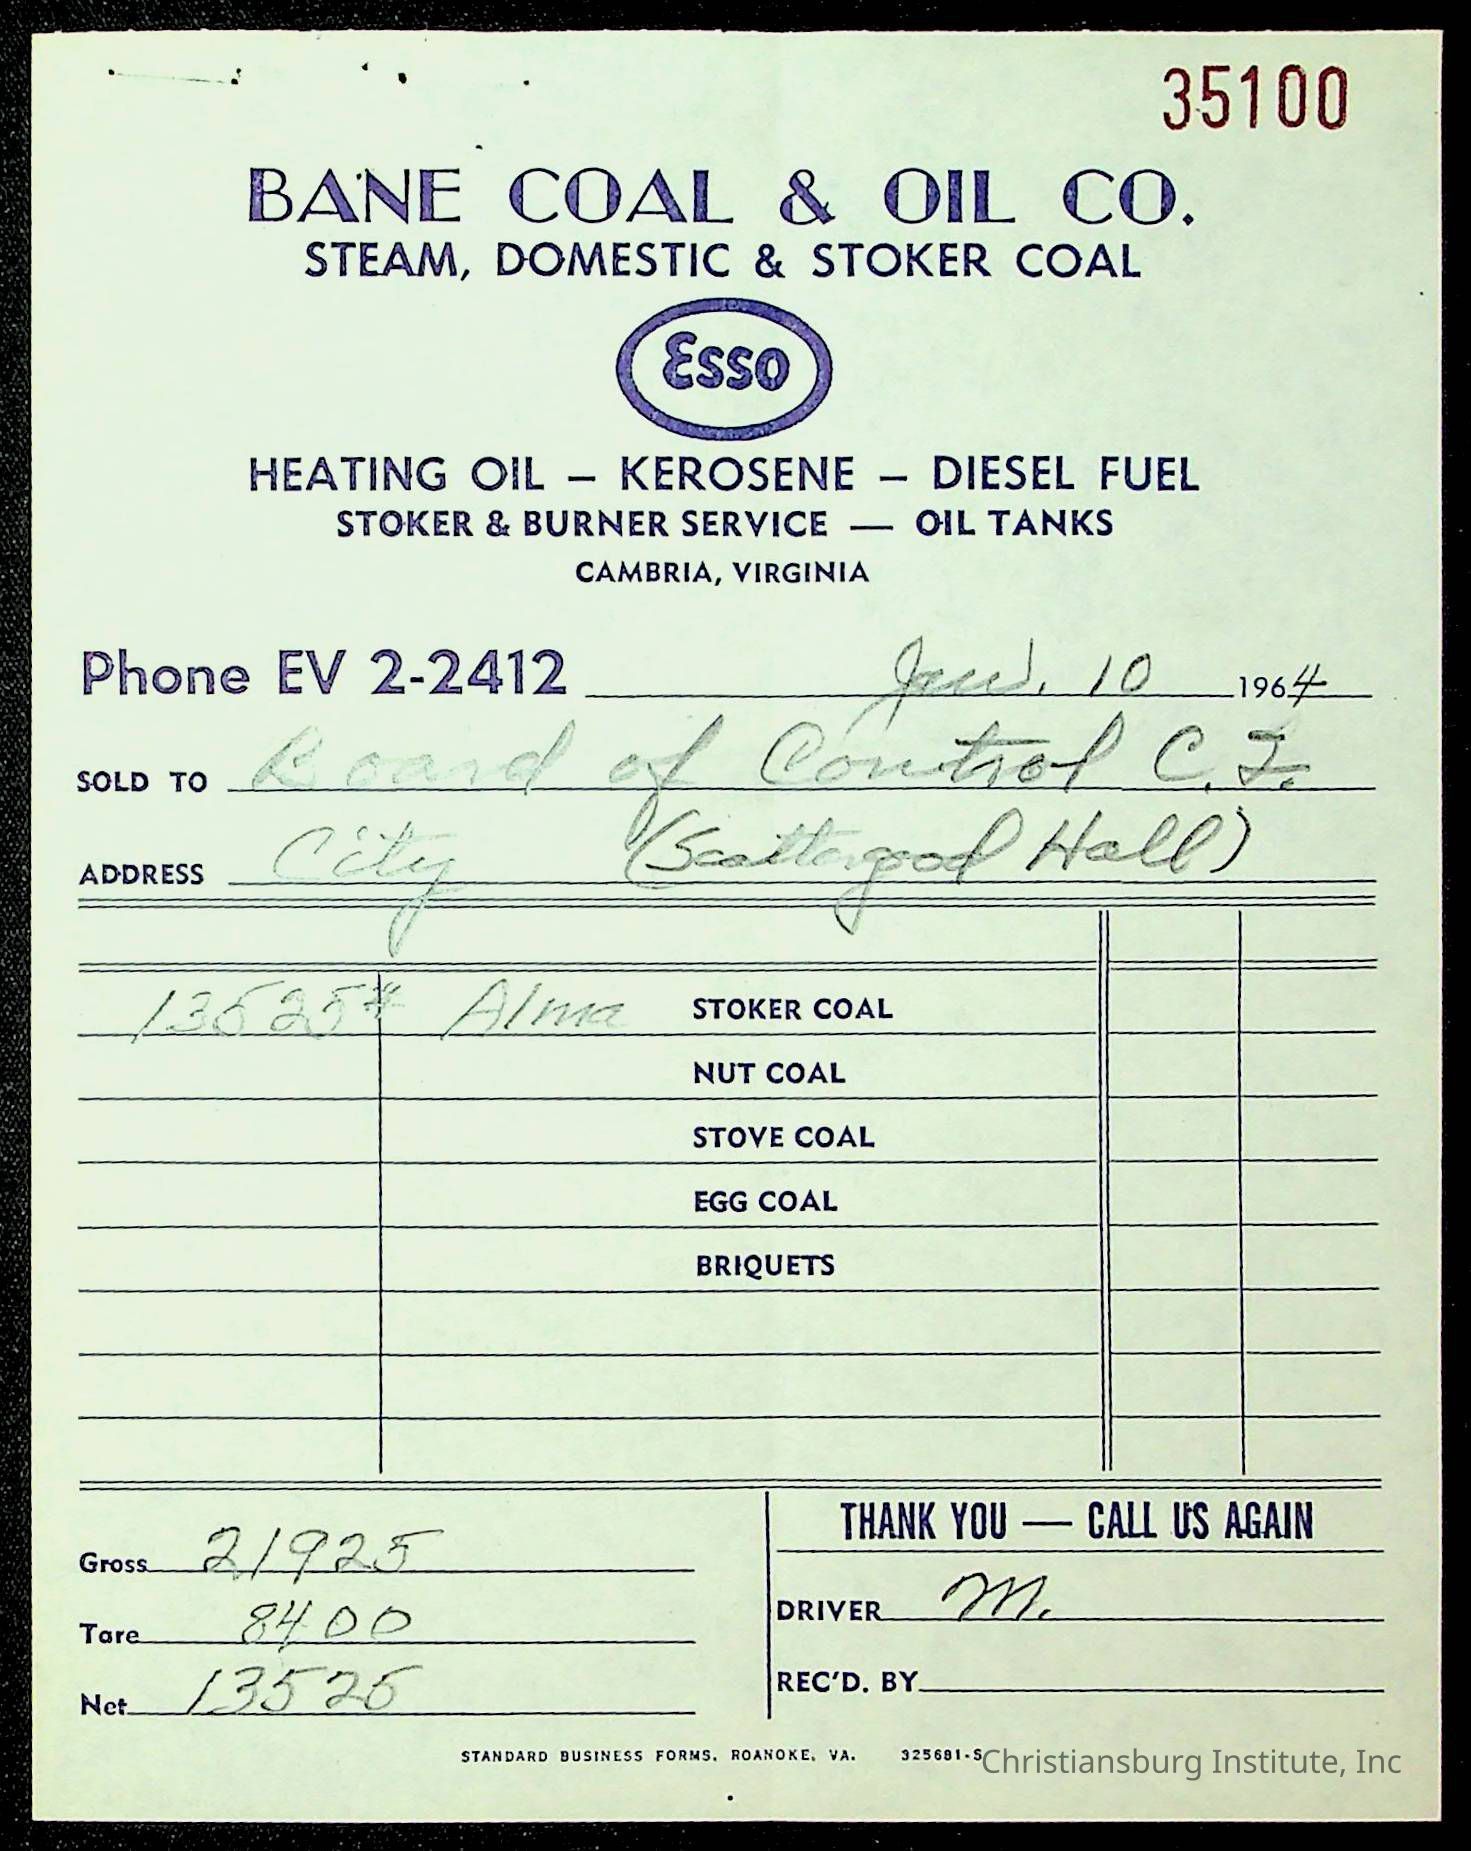 35100
BANE COAL & OIL CO.
STEAM, DOMESTIC & STOKER COAL
Esso
HEATING OIL – KEROSENE – DIESEL FUEL
STOKER & BURNER SERVICE — OIL TANKS
CAMBRIA, VIRGINIA
Phone EV 2-2412 Jan. 10 1964
SOLD TO Board of Control C.I.
ADDRESS City (Scattergood Hall)
13525# Alma STOKER COAL
NUT COAL
STOVE COAL
EGG COAL
BRIQUETS
Gross 21925
Tare 8400
Net 13525
THANK YOU — CALL US AGAIN
DRIVER M.
REC'D. BY
STANDARD BUSINESS FORMS, ROANOKE, VA. 325681-S
Christiansburg Institute, Inc